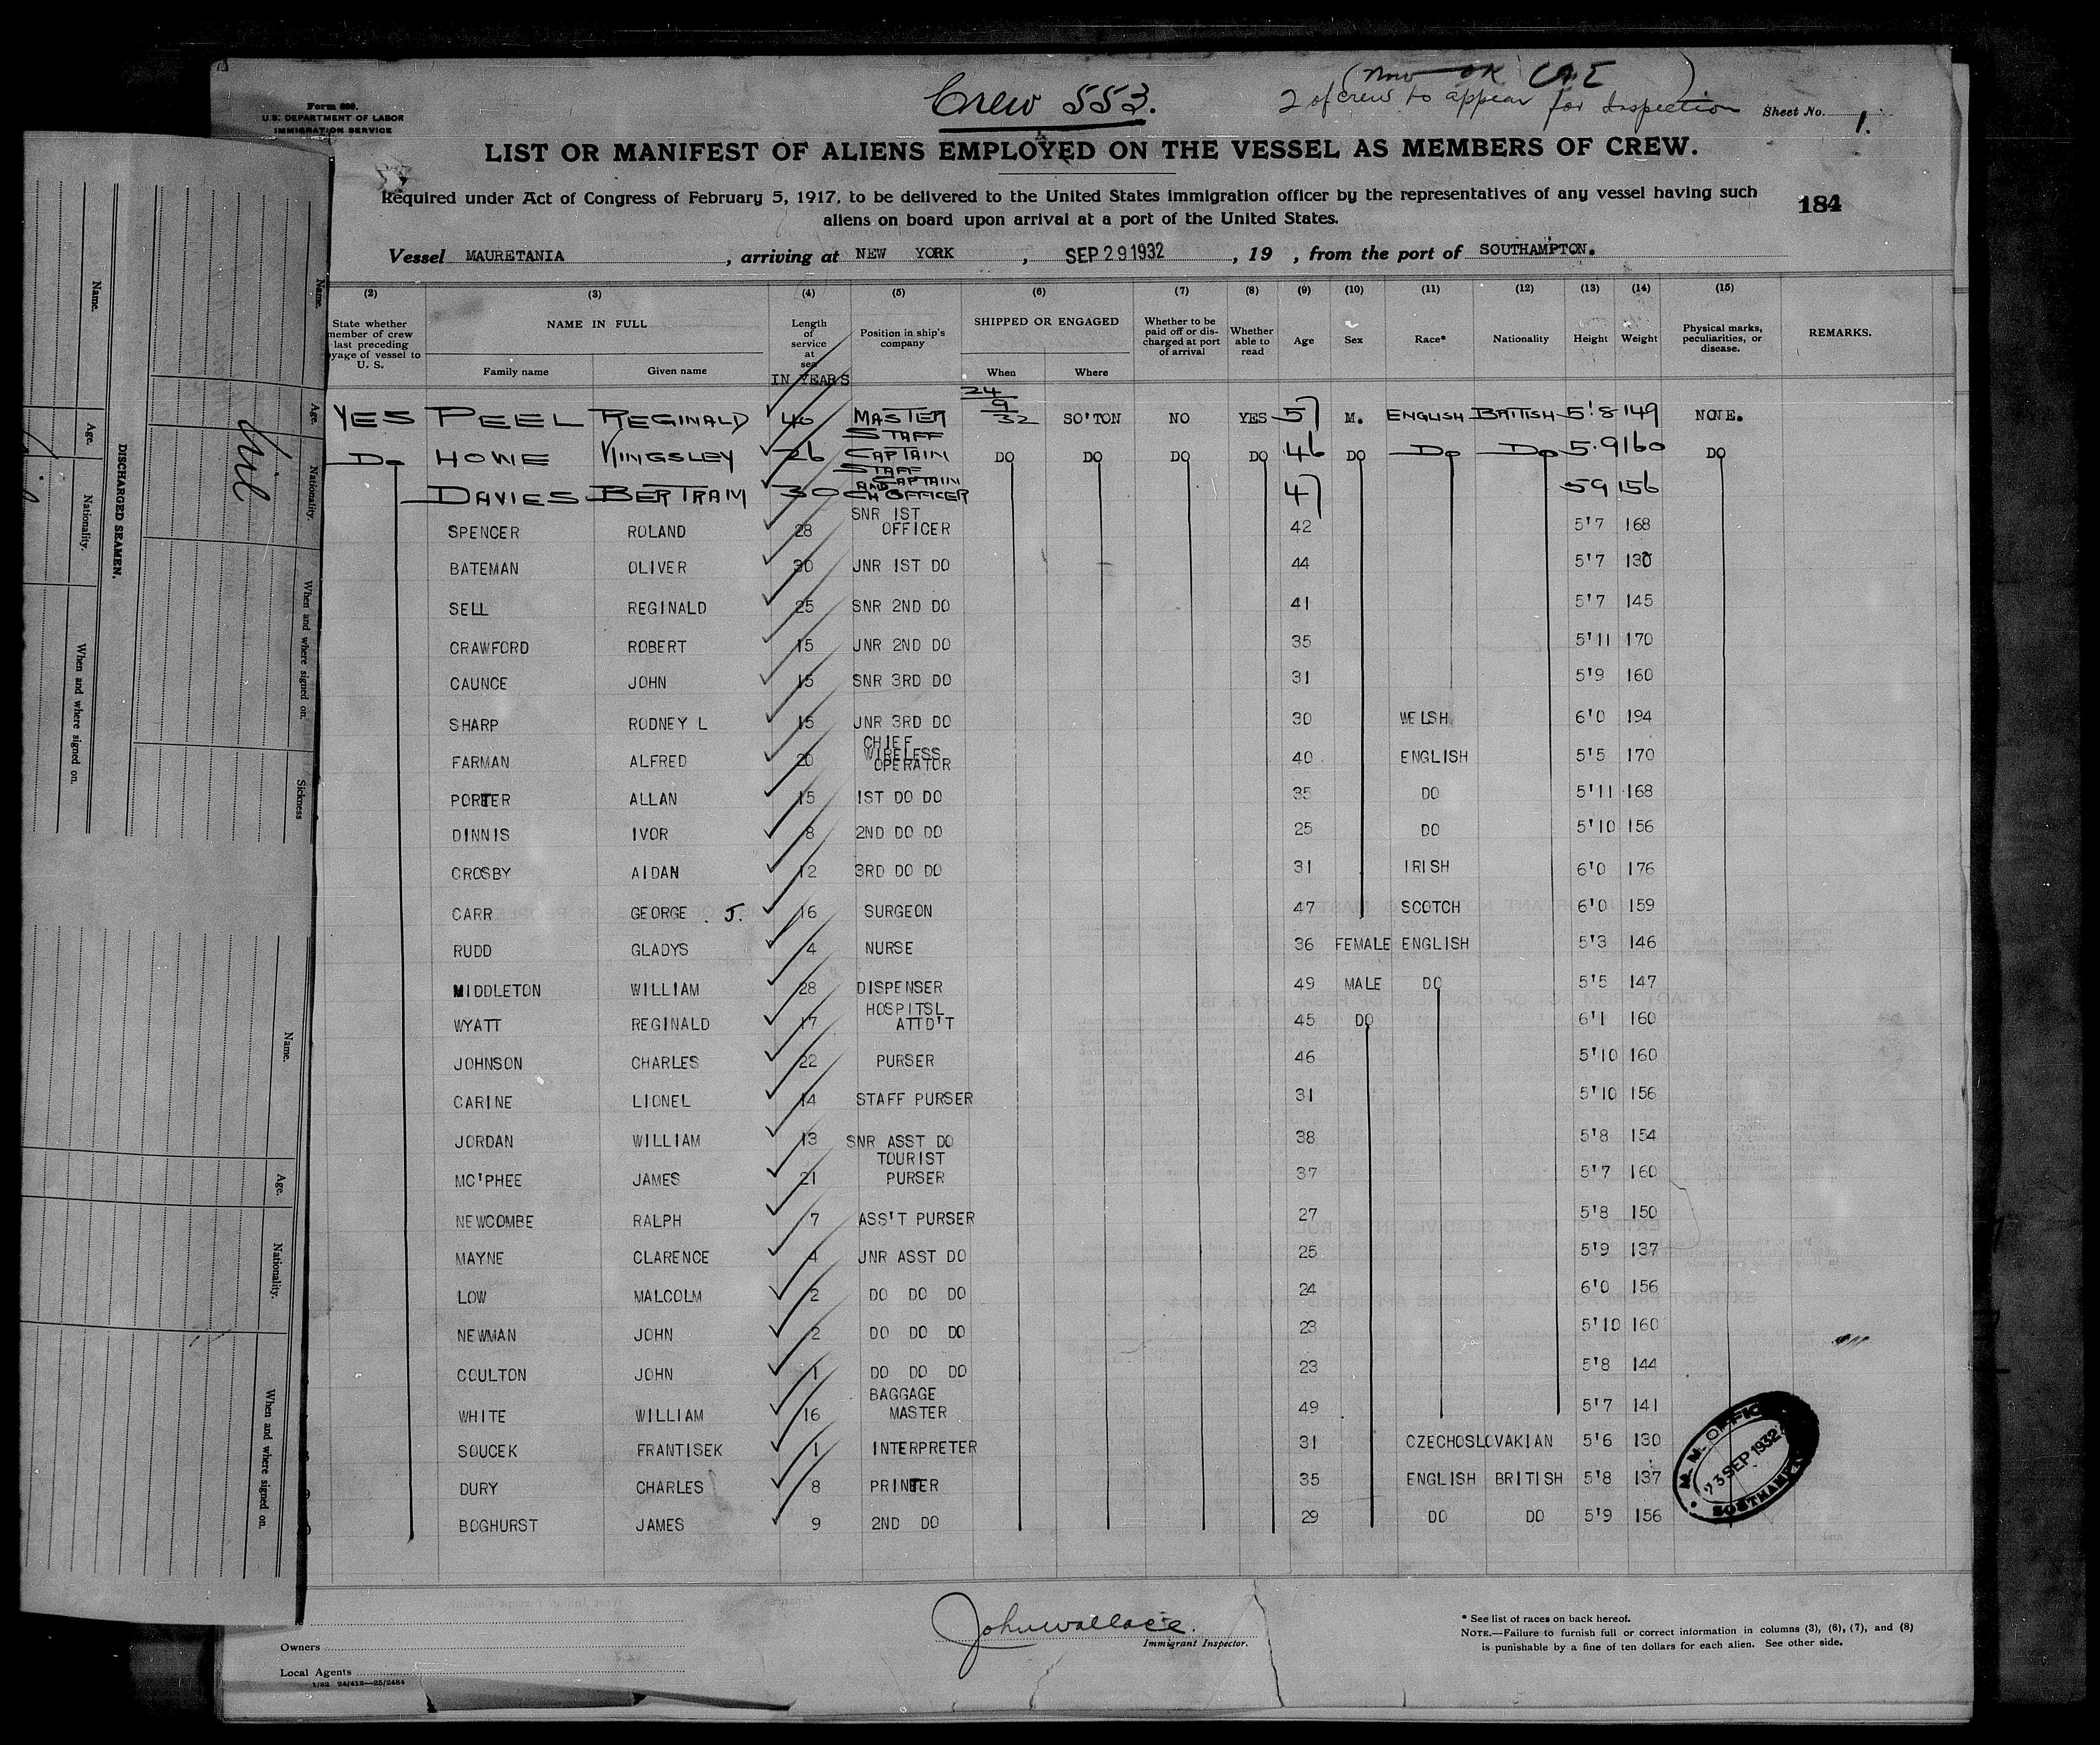 Crew 553.
2 of crew to appear for Inspection
Form 680.
U.S. DEPARTMENT OF LABOR
IMMIGRATION SERVICE
Sheet No. 1.
LIST OR MANIFEST OF ALIENS EMPLOYED ON THE VESSEL AS MEMBERS OF CREW.
Required under Act of Congress of February 5, 1917, to be delivered to the United States immigration officer by the representatives of any vessel having such
aliens on board upon arrival at a port of the United States.
184
Vessel MAURETANIA, arriving at NEW YORK, SEP 29 1932, 19 , from the port of SOUTHAMPTON.
(2) (3) (4) (5) (6) (7) (8) (9) (10) (11) (12) (13) (14) (15)
State whether member of crew last preceding voyage of vessel to U. S.
NAME IN FULL
Family name Given name
Length of service at sea
IN YEARS
Position in ship's company
SHIPPED OR ENGAGED
When Where
Whether to be paid off or discharged at port of arrival
Whether able to read
Age Sex Race* Nationality Height Weight
Physical marks, peculiarities, or disease.
REMARKS.
YES PEEL REGINALD 40 MASTER 24/9/32 SO'TON NO YES 57 M. ENGLISH BRITISH 5'8 149 NONE.
Do HOWE KINGSLEY 26 STAFF CAPTAIN DO DO DO DO 46 DO Do Do 5.9 160 DO
DAVIES BERTRAM 30 STAFF CAPTAIN AND CH OFFICER 47 59 156
SPENCER ROLAND 28 SNR 1ST OFFICER 42 5'7 168
BATEMAN OLIVER 30 JNR 1ST DO 44 5'7 130
SELL REGINALD 25 SNR 2ND DO 41 5'7 145
CRAWFORD ROBERT 15 JNR 2ND DO 35 5'11 170
CAUNCE JOHN 15 SNR 3RD DO 31 5'9 160
SHARP RODNEY L 15 JNR 3RD DO 30 WELSH 6'0 194
FARMAN ALFRED 20 CHIEF WIRELESS OPERATOR 40 ENGLISH 5'5 170
PORTER ALLAN 15 1ST DO DO 35 DO 5'11 168
DINNIS IVOR 8 2ND DO DO 25 DO 5'10 156
CROSBY AIDAN 12 3RD DO DO 31 IRISH 6'0 176
CARR GEORGE . J. 16 SURGEON 47 SCOTCH 6'0 159
RUDD GLADYS 4 NURSE 36 FEMALE ENGLISH 5'3 146
MIDDLETON WILLIAM 28 DISPENSER 49 MALE DO 5'5 147
WYATT REGINALD 17 HOSPITSL ATTD'T 45 DO 6'1 160
JOHNSON CHARLES 22 PURSER 46 5'10 160
CARINE LIONEL 14 STAFF PURSER 31 5'10 156
JORDAN WILLIAM 13 SNR ASST DO 38 5'8 154
MC'PHEE JAMES 21 TOURIST PURSER 37 5'7 160
NEWCOMBE RALPH 7 ASS'T PURSER 27 5'8 150
MAYNE CLARENCE 4 JNR ASST DO 25 5'9 137
LOW MALCOLM 2 DO DO DO 24 6'0 156
NEWMAN JOHN 2 DO DO DO 23 5'10 160
COULTON JOHN 1 DO DO DO 23 5'8 144
WHITE WILLIAM 16 BAGGAGE MASTER 49 5'7 141
SOUCEK FRANTISEK 1 INTERPRETER 31 CZECHOSLOVAKIAN 5'6 130
DURY CHARLES 8 PRINTER 35 ENGLISH BRITISH 5'8 137
BOGHURST JAMES 9 2ND DO 29 DO DO 5'9 156
M. M. OFFICE
23 SEP 1932
SOUTHAMPTON
John Wallace.
Immigrant Inspector.
* See list of races on back hereof.
NOTE.—Failure to furnish full or correct information in columns (3), (6), (7), and (8)
is punishable by a fine of ten dollars for each alien. See other side.
Owners
Local Agents
Name. Age. Nationality. When and where signed on.
DISCHARGED SEAMEN.
Nil
Name. Age. Nationality. When and where signed on. Sickness
Name. Age. Nationality. When and where signed on.